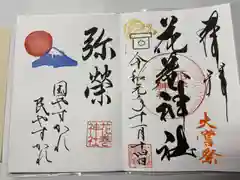 奉拝
大嘗祭
花巻神社
令和元年十一月十四日
弥榮
国やすかれ
民やすかれ